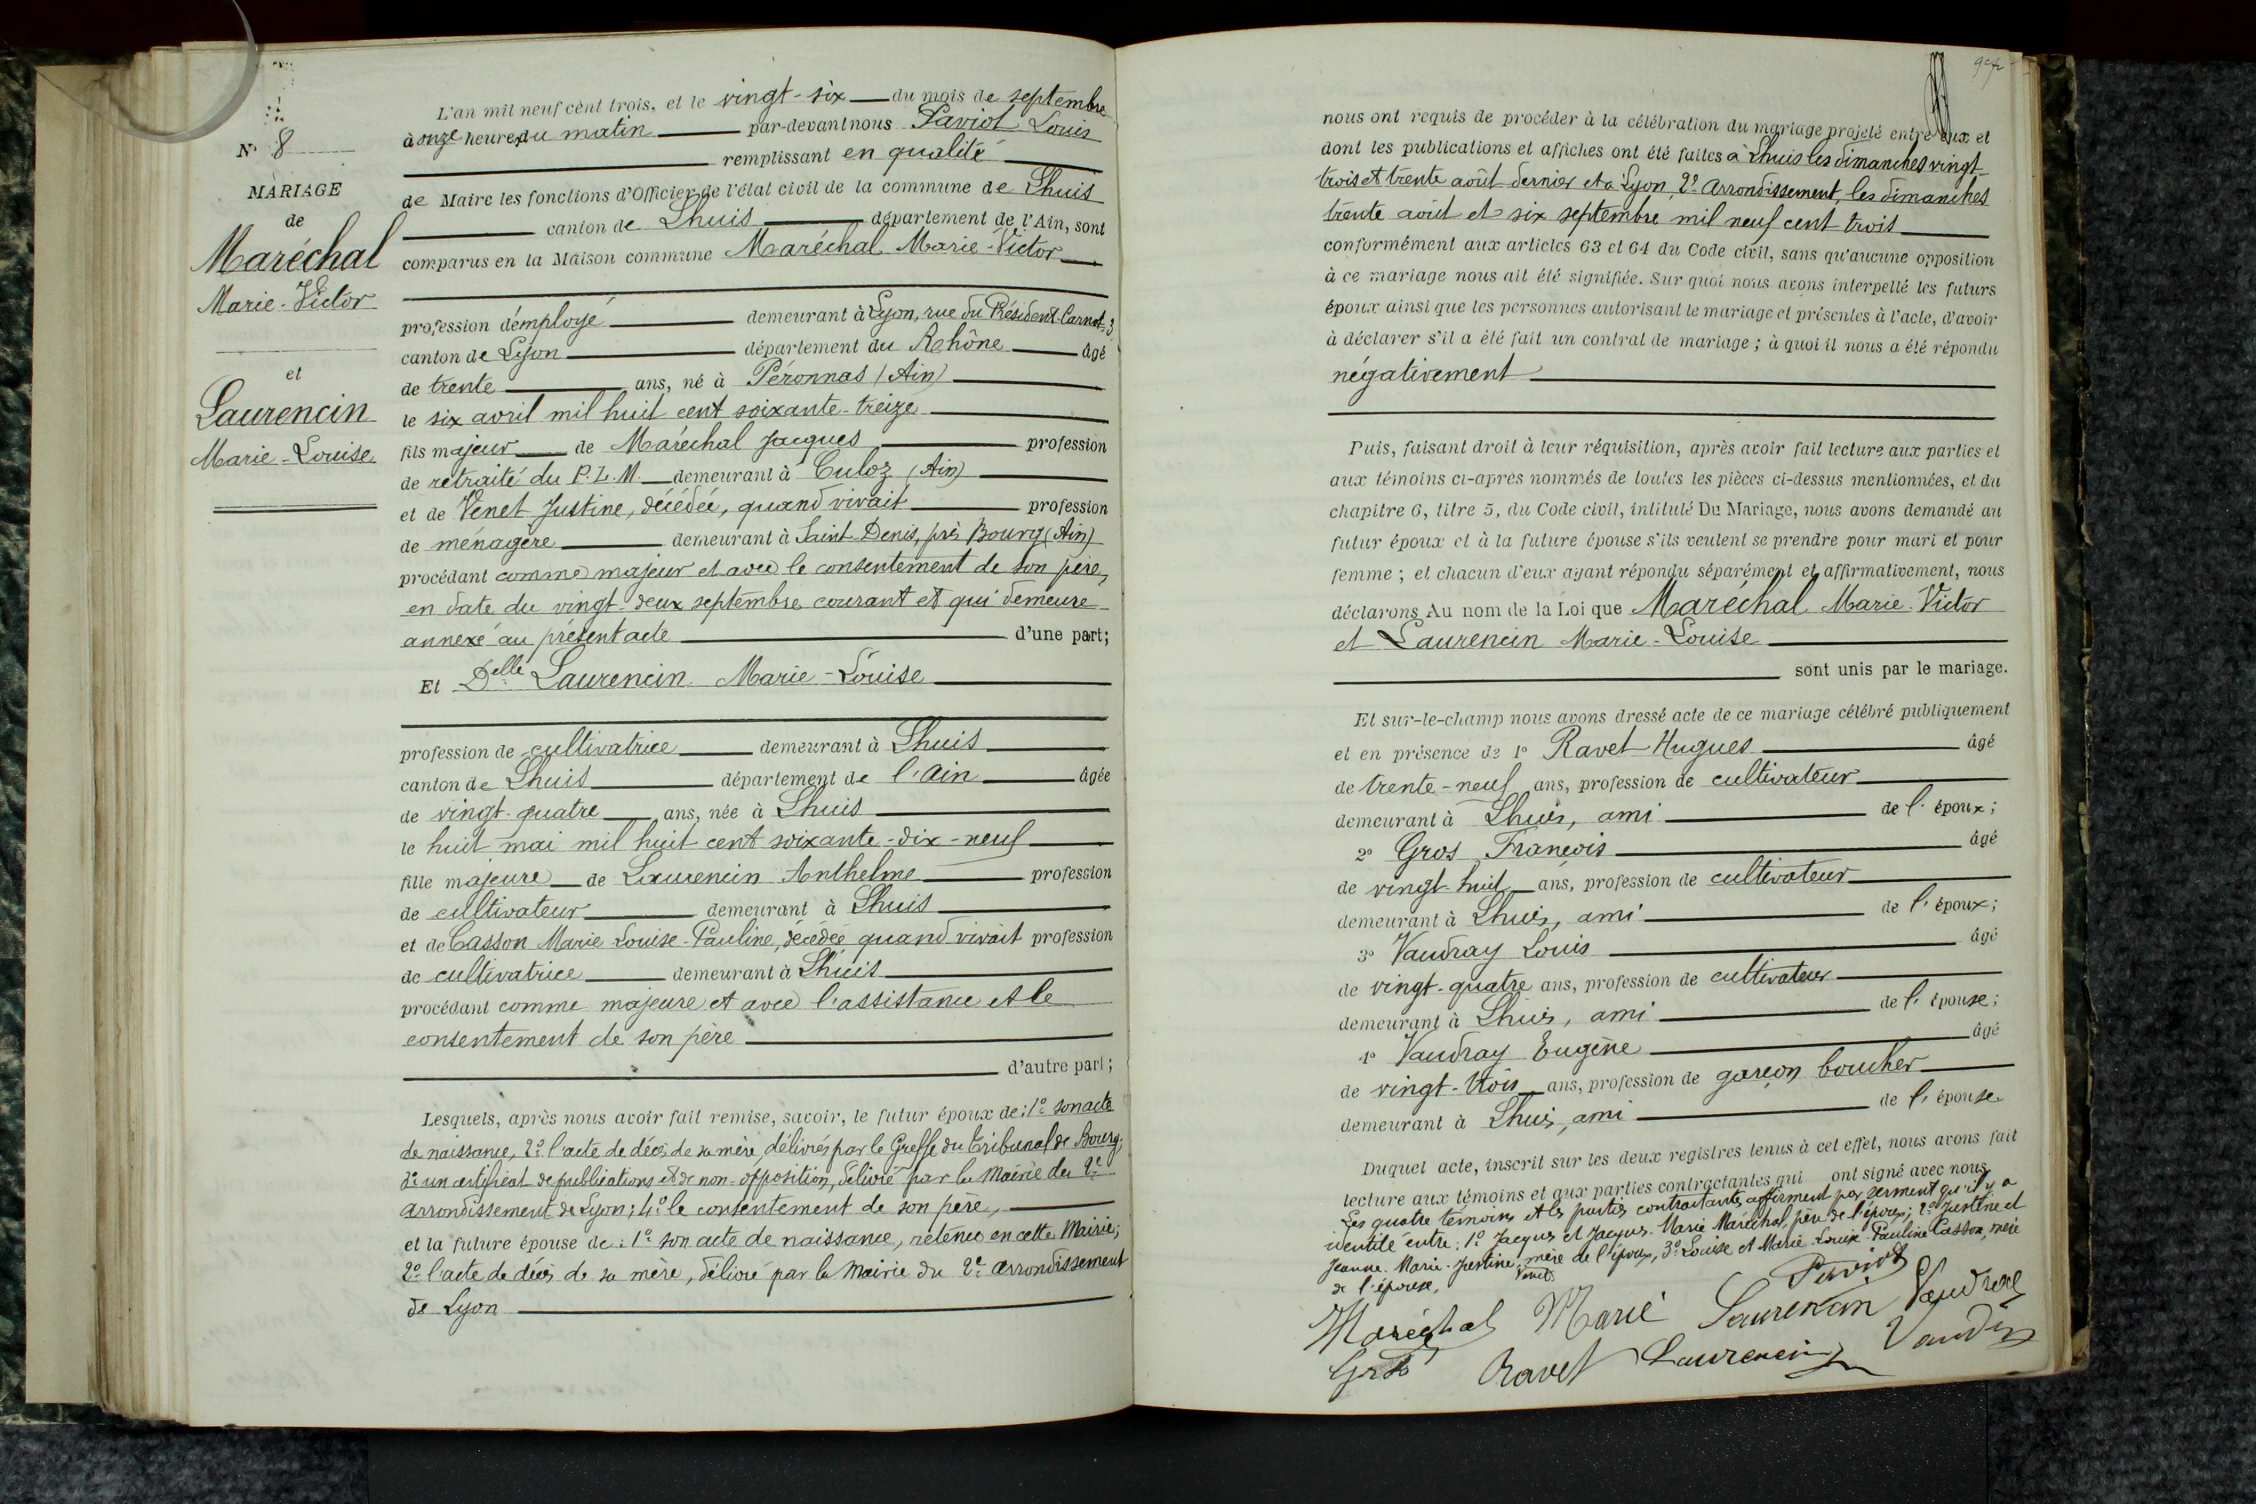 N° 8
MARIAGE
de
Maréchal
Marie-Victor
et
Laurencin
Marie-Louise
L'an mil neuf cent trois, et le vingt-six du mois de septembre
à onze heures du matin par-devant nous Paviot Louis
remplissant en qualité
de Maire les fonctions d'Officier de l'état civil de la commune de Lhuis
canton de Lhuis département de l'Ain, sont
comparus en la Maison commune Maréchal Marie-Victor
profession d'employé demeurant à Lyon, rue du Président-Carnot, 3
canton de Lyon département du Rhône âgé
de trente ans, né à Péronnas (Ain)
le six avril mil huit cent soixante-treize
fils majeur de Maréchal Jacques profession
de retraité du P.L.M. demeurant à Culoz (Ain)
et de Venet Justine, décédée, quand vivait profession
de ménagère demeurant à Saint-Denis, près Bourg (Ain)
procédant comme majeur et avec le consentement de son père,
en date du vingt-deux septembre courant et qui demeure
annexé au présent acte d'une part;
Et Delle Laurencin Marie-Louise
profession de cultivatrice demeurant à Lhuis
canton de Lhuis département de l'Ain âgée
de vingt-quatre ans, née à Lhuis
le huit mai mil huit cent soixante-dix-neuf
fille majeure de Laurencin Anthelme profession
de cultivateur demeurant à Lhuis
et de Casson Marie-Louise-Pauline, décédée quand vivait profession
de cultivatrice demeurant à Lhuis
procédant comme majeure et avec l'assistance et le
consentement de son père
d'autre part;
Lesquels, après nous avoir fait remise, savoir, le futur époux de: 1° son acte
de naissance, 2° l'acte de décès de sa mère, délivrés par le Greffe du Tribunal de Bourg;
3° un certificat de publications et de non-opposition, délivré par la Mairie du 2e
arrondissement de Lyon; 4° le consentement de son père,
et la future épouse de: 1° son acte de naissance, retenu en cette Mairie;
2° l'acte de décès de sa mère, délivré par la Mairie du 2e arrondissement
de Lyon
nous ont requis de procéder à la célébration du mariage projeté entre eux et
dont les publications et affiches ont été faites à Lhuis les dimanches vingt-
trois et trente août dernier et à Lyon, 2e arrondissement, les dimanches
trente août et six septembre mil neuf cent trois
conformément aux articles 63 et 64 du Code civil, sans qu'aucune opposition
à ce mariage nous ait été signifiée. Sur quoi nous avons interpellé les futurs
époux ainsi que les personnes autorisant le mariage et présentes à l'acte, d'avoir
à déclarer s'il a été fait un contrat de mariage; à quoi il nous a été répondu
négativement
Puis, faisant droit à leur réquisition, après avoir fait lecture aux parties et
aux témoins ci-après nommés de toutes les pièces ci-dessus mentionnées, et du
chapitre 6, titre 5, du Code civil, intitulé Du Mariage, nous avons demandé au
futur époux et à la future épouse s'ils veulent se prendre pour mari et pour
femme; et chacun d'eux ayant répondu séparément et affirmativement, nous
déclarons Au nom de la Loi que Maréchal Marie-Victor
et Laurencin Marie-Louise
sont unis par le mariage.
Et sur-le-champ nous avons dressé acte de ce mariage célébré publiquement
et en présence de 1° Ravet Hugues âgé
de trente-neuf ans, profession de cultivateur
demeurant à Lhuis, ami de l'époux;
2° Gros François âgé
de vingt-huit ans, profession de cultivateur
demeurant à Lhuis, ami de l'époux;
3° Vaudray Louis âgé
de vingt-quatre ans, profession de cultivateur
demeurant à Lhuis, ami de l'épouse;
4° Vaudray Eugène âgé
de vingt-trois ans, profession de garçon boucher
demeurant à Lhuis, ami de l'épouse
Duquel acte, inscrit sur les deux registres tenus à cet effet, nous avons fait
lecture aux témoins et aux parties contractantes qui ont signé avec nous.
Les quatre témoins et les parties contractantes affirment par serment qu'il y a
identité entre: 1° Jacques et Jacques-Marie Maréchal, père de l'époux; 2° Justine et
Jeanne-Marie-Justine Venet, mère de l'époux, 3° Louise et Marie-Louise-Pauline Casson, mère
de l'épouse.
Paviot
Maréchal Marie Laurencin
Gros Ravet Laurencin